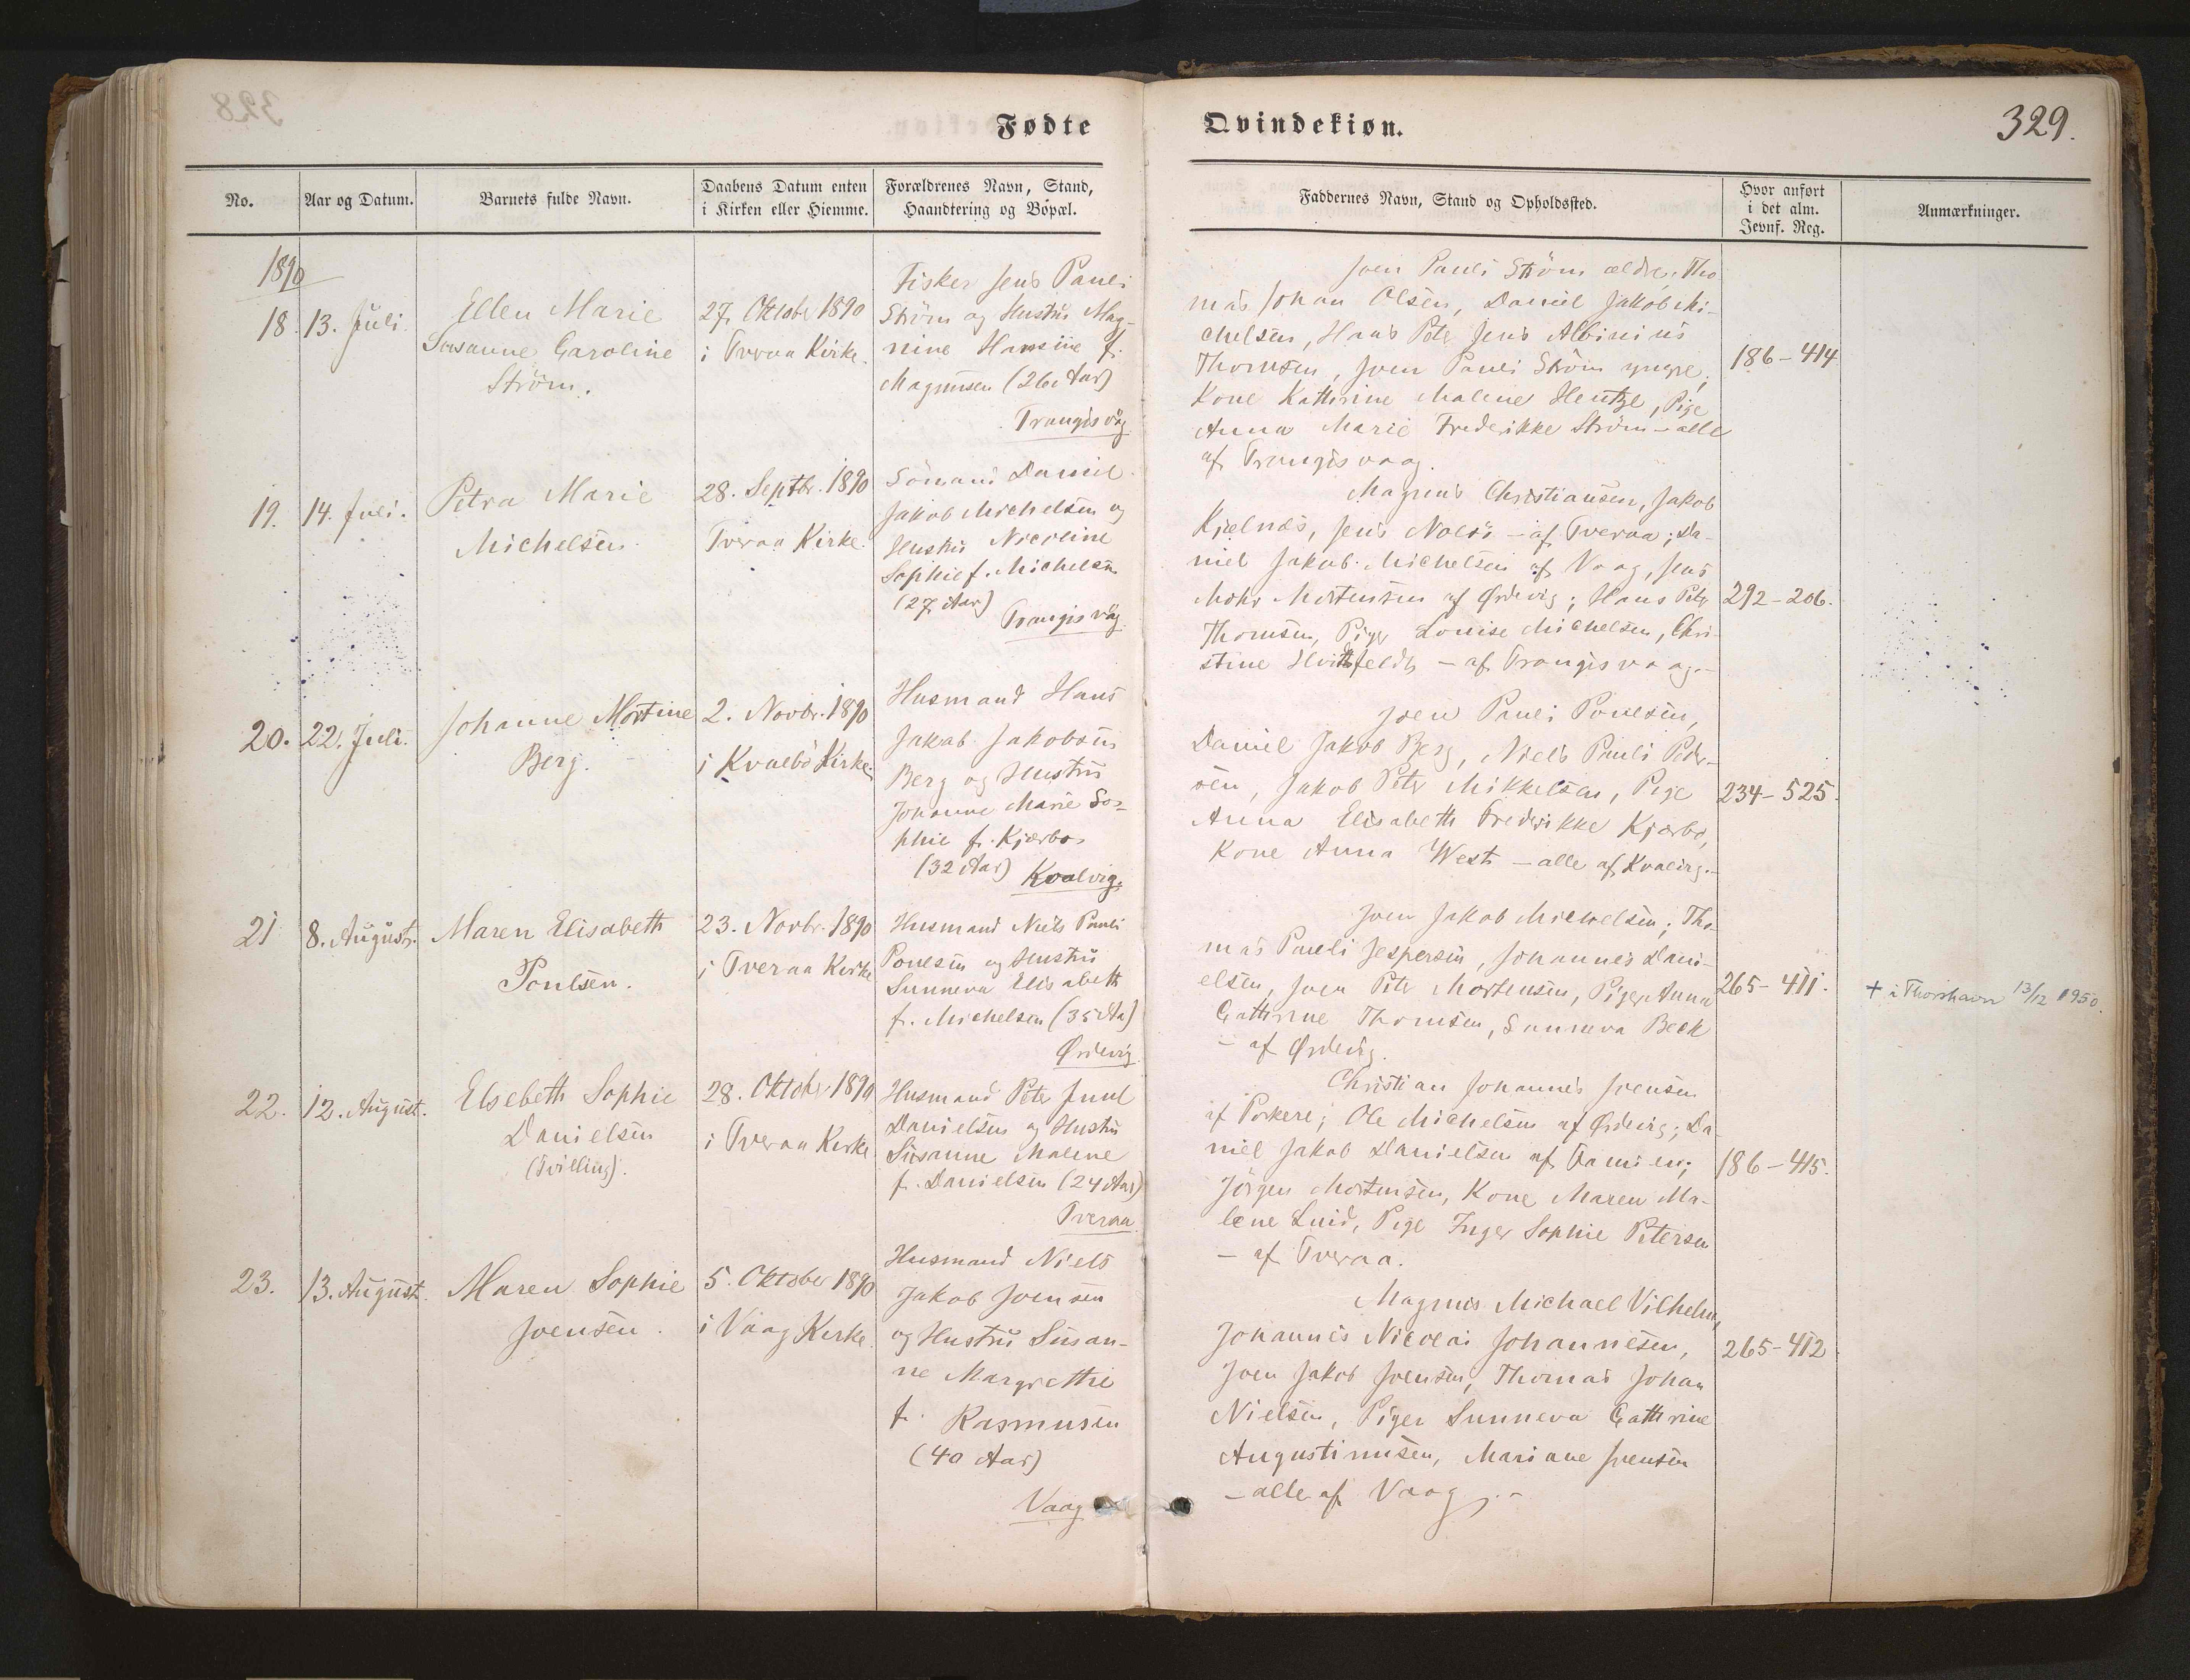 Fødte
Qvindekiøn.
329.
No.
Aar og Datum.
Barnets fulde Navn.
Daabens Datum enten
i Kirken eller Hiemme.
Forældrenes Navn, Stand,
Haandtering og Bópæl.
Faddernes Navn, Stand og Opholdssted.
Hvor anført
i det alm.
Jevnf. Reg.
Anmærkninger.
1890
18.
13. Juli.
Ellen Marie
Susanne Caroline
Ström.
27. Oktobr 1890
i Tveraa Kirke.
Fisker Jens Pauli
Ström og Hustru Mag-
nine Hansine f.
Magnusen (26 Aar)
Trangisvåg
Joen Pauli Ström ældre, Tho
mas Johan Olsen, Daniel Jakob Mi-
chelsen, Hans Peter Jens Albinius
Thomsen, Joen Pauli Ström yngre,
Kone Kathrine Malene Hentze, Pige
Anna Marie Frederikke Ström - alle
af Trangisvaag.
186-414
19.
14. Juli.
Petra Marie
Michelsen.
28. Septbr. 1890
Tveraa Kirke.
Sömand Daniel
Jakob Michelsen og
Hustru Nicoline
Sophie f. Michelsen
(27 Aar)
Trangisvåg.
Magnus Christiansen, Jakob
Kjelnæs, Jens Nolsö - af Tveraa; Da-
niel Jakob Michelsen af Vaag, Jens
Mohr Mortensen af Ørdevig; Hans Peter
Thomsen, Piger Louise Michelsen, Chri-
stine Hvittfeldt - af Trangisvaag.-
292-206.
20.
22. Juli.
Johanne Mortine
Berg.
2. Novbr. 1890
i Kvalbö Kirke.
Husmand Hans
Jakob Jakobsen
Berg og Hustru
Johanne Marie So-
phie f. Kjærbo
(32 Aar)
Kvalvig.
Joen Pauli Poulsen,
Daniel Jakob Berg, Niels Pauli Peder-
sen, Jakob Peter Mikkelsen, Pige
Anna Elisabeth Fredrikke Kjærbo,
Kone Anna West - alle af Kvalvig.-
234-525.
21
8. August.
Maren Elisabeth
Poulsen.
23. Novbr. 1890
i Tveraa Kirke
Husmand Niels Pauli
Poulsen og Hustru
Sunneva Elisabeth
f. Michelsen (35 Aa)
Ørdevig
Joen Jakob Michelsen, Tho-
mas Pauli Jespersen, Johannes Dani-
elsen, Joen Peter Mortensen, Piger Anna
Cathrine Thomsen, Sunneva Beck
- af Ørdevig.
265-411.
+ i Thorshavn 13/12 1950.
22.
12. August.
Elsebeth Sophie
Danielsen
(Tvilling).
28. Oktober 1890
i Tveraa Kirke
Husmand Peter Juul
Danielsen og Hustru
Susanne Malene
f. Danielsen (24 Aar)
Tveraa.
Christian Johannes Joensen
af Porkere; Ole Michelsen af Ørdevig; Da-
niel Jakob Danielsen af Famien;
Jörgen Mortensen, Kone Maren Ma-
lene Luid, Pige Inger Sophie Petersen
- af Tveraa.
186-415.
23.
13. August.
Maren Sophie
Joensen.
5. Oktober 1890
i Vaag Kirke.
Husmand Niels
Jakob Joensen
og Hustru Susan-
ne Margrethe
f. Rasmusen
(40 Aar)
Vaag
Magnus Michael Vilhelm,
Johannes Nicolai Johannesen,
Joen Jakob Joensen, Thomas Johan
Nielsen, Piger Sunneva Cathrine
Augustinusen, Mariane Joensen
- alle af Vaag.-
265-412